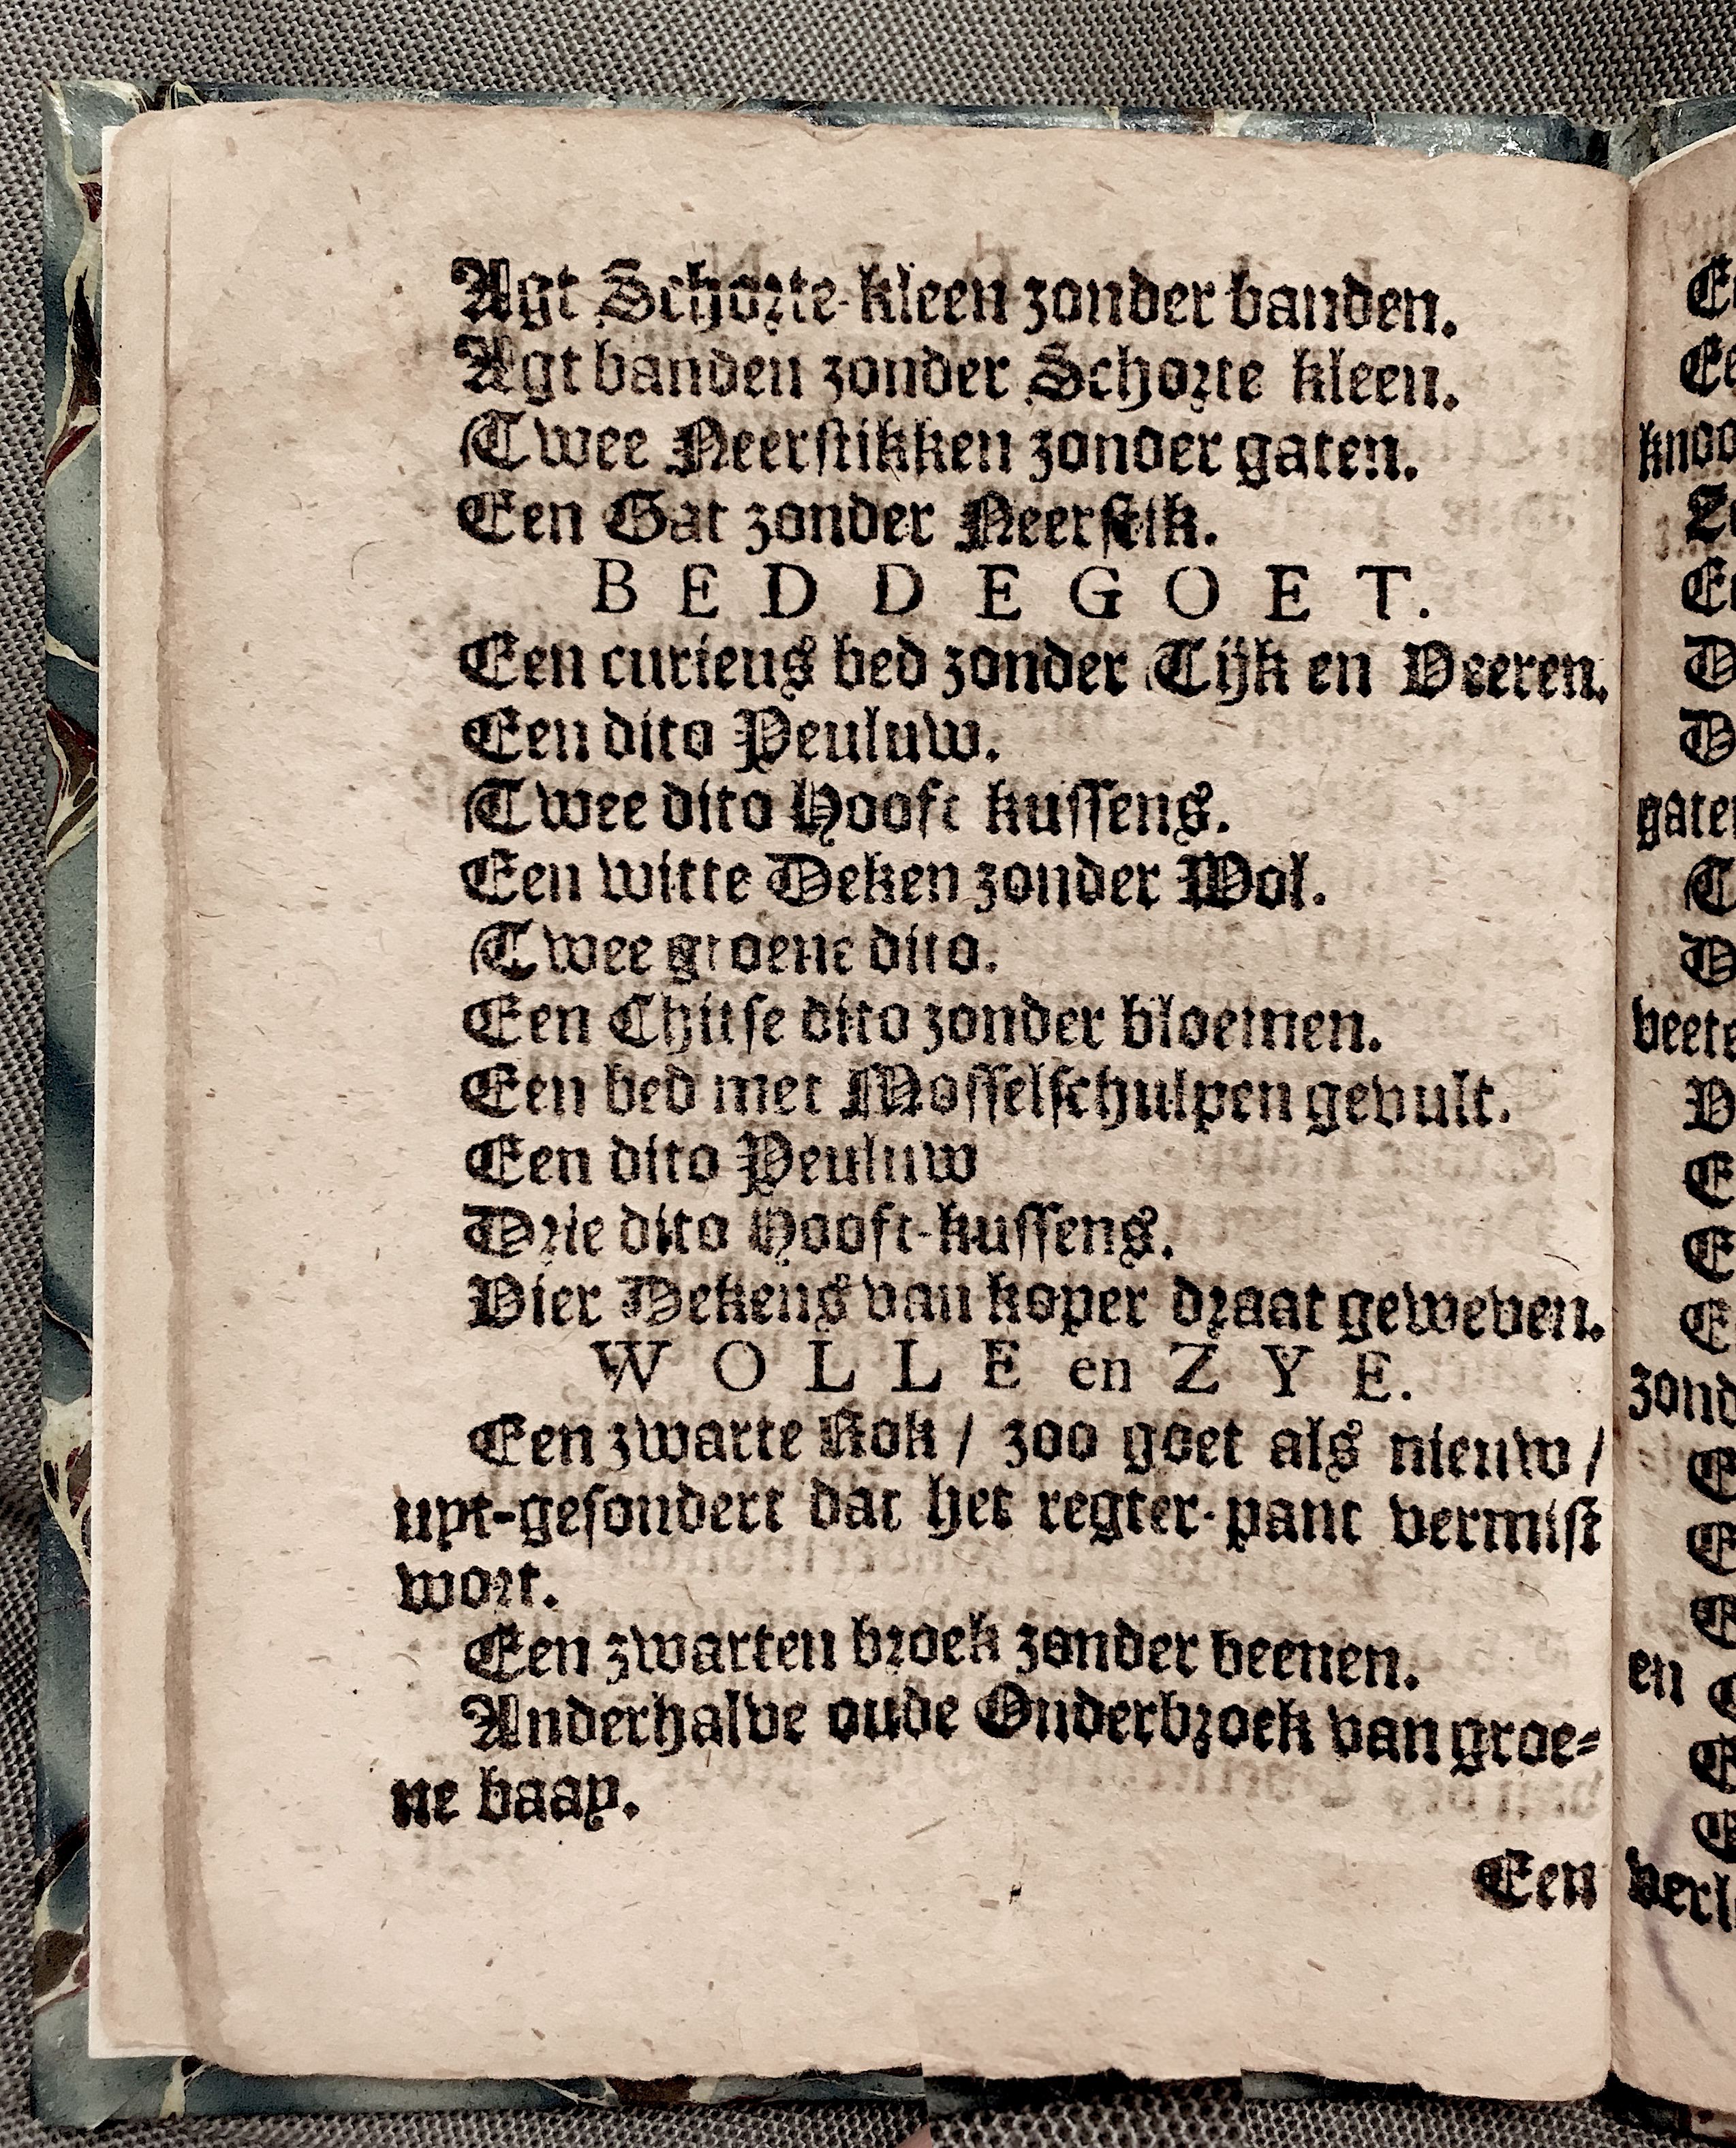 Agt Schorte-kleen zonder banden.
Agt banden zonder Schorte kleen.
Twee Neerstikken zonder gaten.
Een Gat zonder Neerstik.
BEDDEGOET.
Een curieus bed zonder Tijk en Veeren.
Een dito Peuluw.
Twee dito Hooft kussens.
Een witte Deken zonder Wol.
Twee groene dito.
Een Chitse dito zonder bloemen.
Een bed met Mosselschulpen gevult.
Een dito Peuluw
Drie dito Hooft-kussens.
Vier Dekens van koper draat geweven.
WOLLE en ZYE.
Een zwarte Rok / zoo goet als nieuw /
uyt-gesondert dat het regter-pant vermist
wort.
Een zwarten broek zonder beenen.
Anderhalve oude Onderbroek van groe-
ne baay.
Een
knoo
gate
veete
zond
en
verl